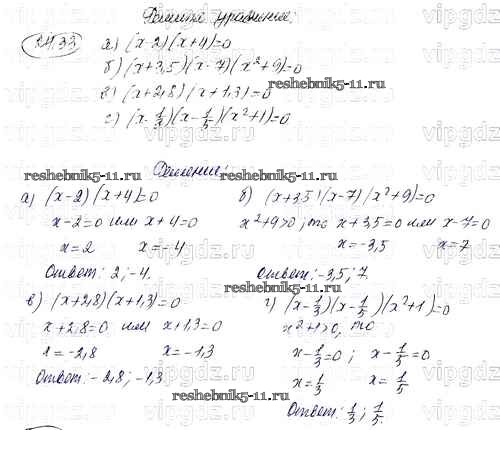 Решите уравнение:
24.33 а) (x-2)(x+4)=0
б) (x+3,5)(x-7)(x²+9)=0
в) (x+2,8)(x+1,3)=0
reshebnik5-11.ru
г) (x-1/3)(x-1/5)(x²+1)=0
reshebnik5-11.ru
Решение:
а) (x-2)(x+4)=0
x-2=0 или x+4=0
x=2 x=-4
Ответ: 2; -4.
б) (x+3,5)(x-7)(x²+9)=0
x²+9>0, то x+3,5=0 или x-7=0
x=-3,5 x=7
Ответ: -3,5; 7.
reshebnik5-11.ru
в) (x+2,8)(x+1,3)=0
x+2,8=0 или x+1,3=0
x=-2,8 x=-1,3
Ответ: -2,8; -1,3
г) (x-1/3)(x-1/5)(x²+1)=0
x²+1>0, то
x-1/3=0; x-1/5=0
x=1/3 x=1/5
Ответ: 1/3; 1/5.
reshebnik5-11.ru
vipgdz.ru